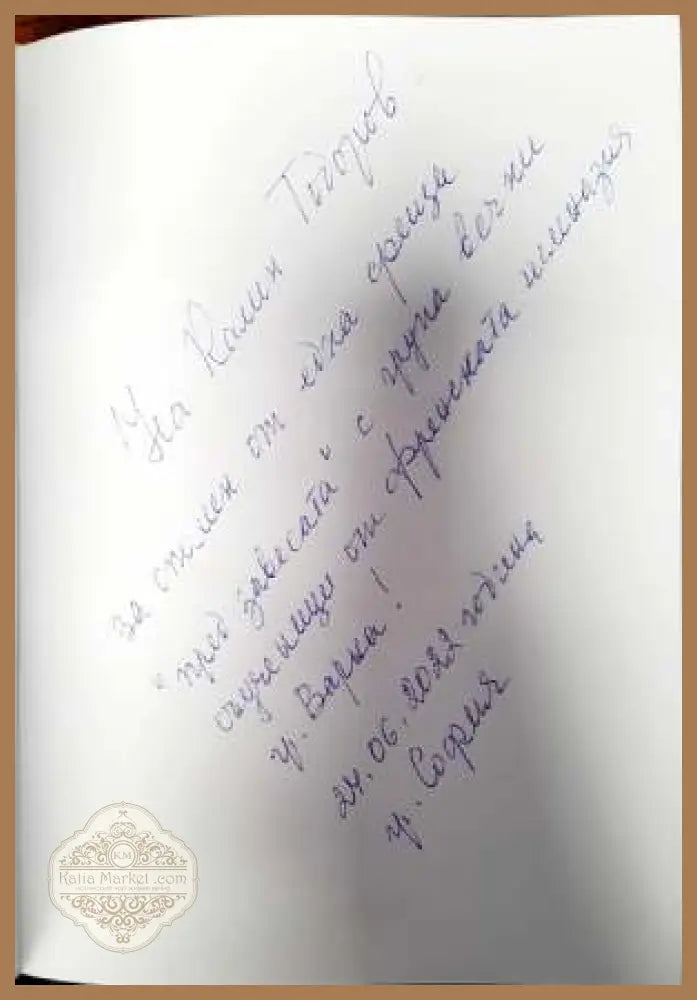 На Калин Тодоров
за спомен от една среща
"пред завесата" с група вечни
съученици от френската гимназия
гр. Варна!
24.06.2022 година
гр. София
KM
Kalia Market .com